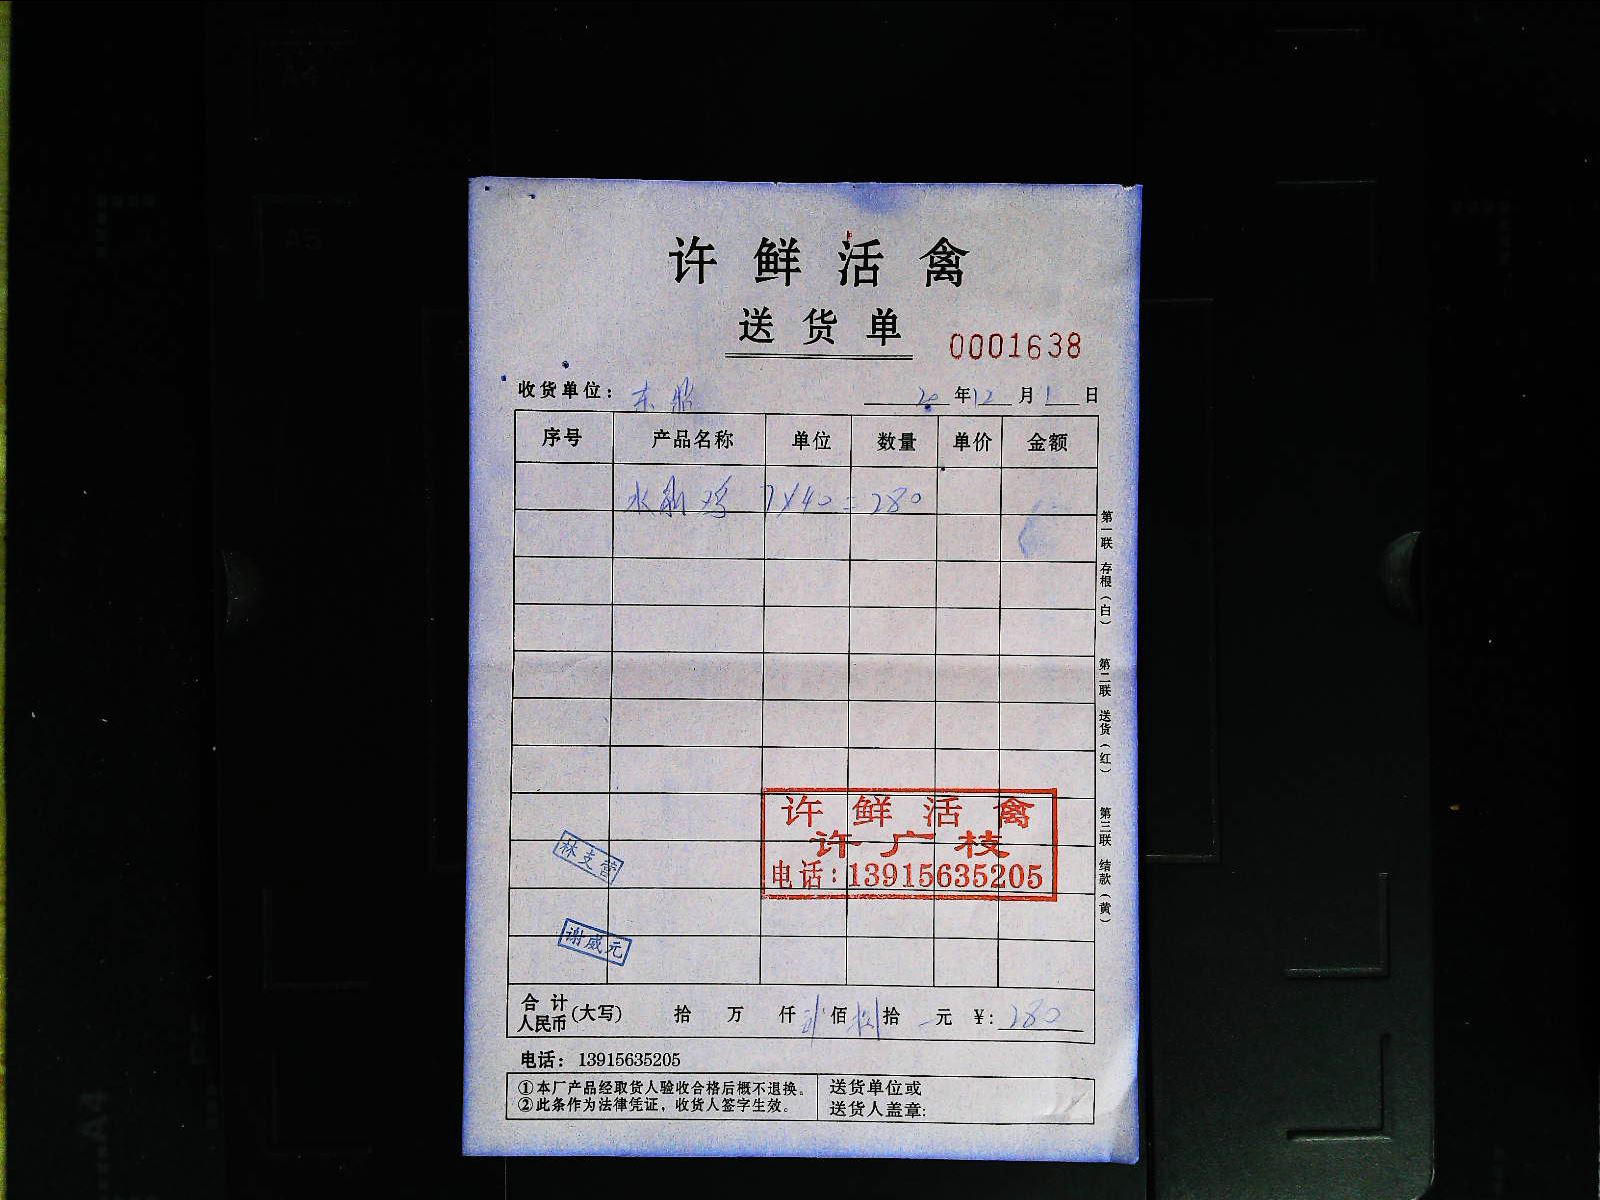 许鲜活禽
送货单
0001638
收货单位：东
20年12月1日
序号 产品名称 单位 数量 单价 金额
水 鸡 7×40=280
第一联 存根（白）
第二联 送货（红）
第三联 结款（黄）
许鲜活禽
许广枝
电话：13915635205
林支营
谢威元
合计人民币（大写） 拾 万 仟贰佰捌拾 元 ¥：280
电话：13915635205
①本厂产品经取货人验收合格后概不退换。
②此条作为法律凭证，收货人签字生效。
送货单位或
送货人盖章：
A4
A5
A4